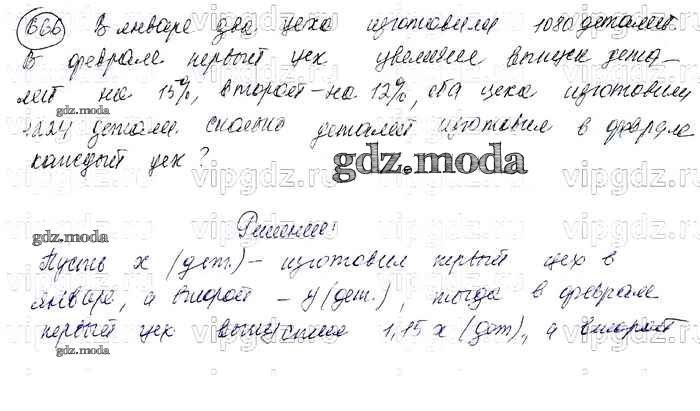 666 В январе два цеха изготовили 1080 деталей.
В феврале первый цех увеличил выпуск дета-
лей на 15%, второй - на 12%, оба цеха изготовили
1224 детали. Сколько деталей изготовил в феврале
каждый цех?
gdz.moda
gdz.moda
vipgdz.ru
Решение:
gdz.moda
Пусть x (дет.) - изготовил первый цех в
январе, а второй - y (дет.), тогда в феврале
первый цех выпустил 1,15 x (дет), а второй
gdz.moda